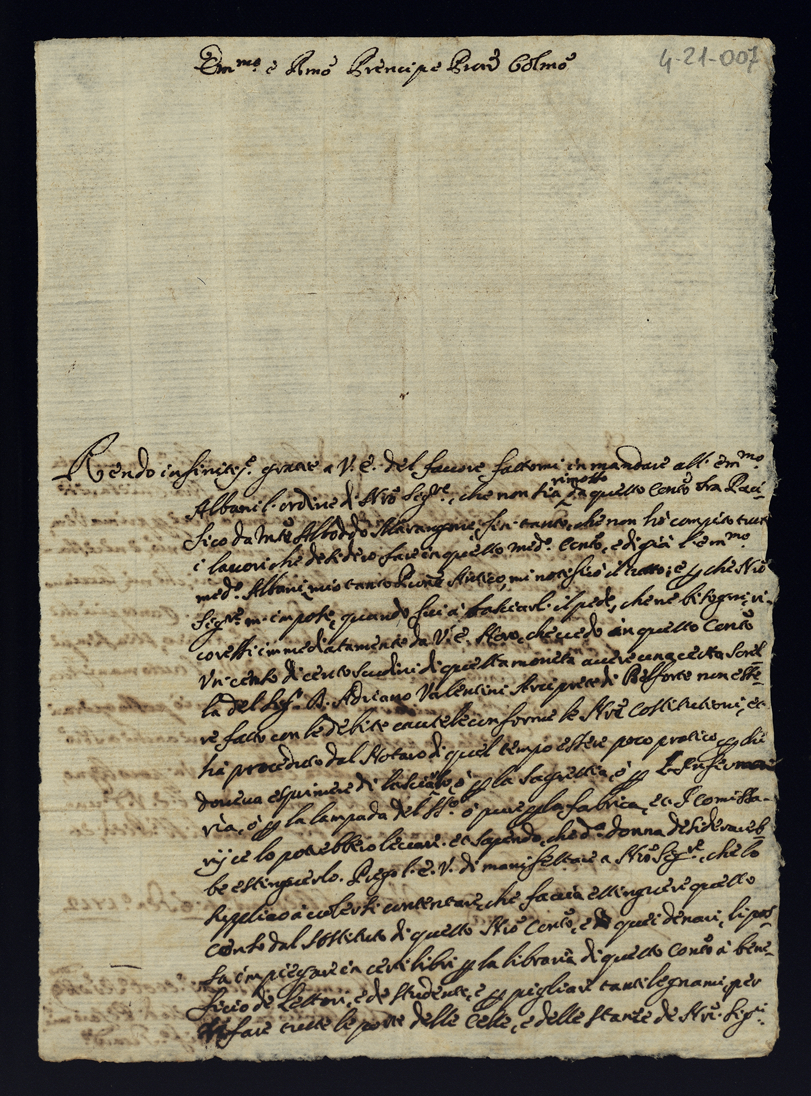 Em.mo e Rmo Prencipe Pron Colmo
4-21-007
Rendo infinite gratie a V. E. del favore fattomi in mandare all' em.mo
rimosso
Albani l'ordine di Nro Sigre, che non sia da questo Conto fra Paci-
fico da Mte Albodo Marangone sin tanto, che non ha compito tutti
i lavori che desidero fare in questo med.o Conto, e di già l'em.mo
med.o Albani mio tanto Prone Antico, mi notificò il tutto; e che Nro
Sigre m' impose, quando fui a baciarli il piede, che ne bisogni, ri-
corressi immediatamente da V. E. Stero, che vedo in questo Conto
Un censo di cento scudi di questa moneta avere una certa sorel-
la del Sigr D. Adriano Valentini Arciprete di Belforte non esse-
re fatto con le debite cautele conforme le Nre Costitutioni, et
ha proceduto dal Notaro di quel tempo essere poco pratico, che
doveva esprimere di lasciarlo, ò la Sagrestia, ò Infermaria
ria, ò la lampada del SSo ò pure la fabrica, et I Comissa-
rij ce lo potrebbero levare. et sapendo, che da donna desiderereb-
be estinguerlo. Prego l. E. V. di manifestare a Nro Sigre, che lo
supplico à volersi contentare, che faccia estinguere questo
Censo dal Sostituto di questo Nro Conto, e quei denari, li pos-
sa impiegare in certi libri la libraria di questo Conto à bene-
ficio de Lettori, e de studenti, e pigliare tanti legnami, per
fare tutte le porte delle Celle, e delle stanze de Nri Sigri